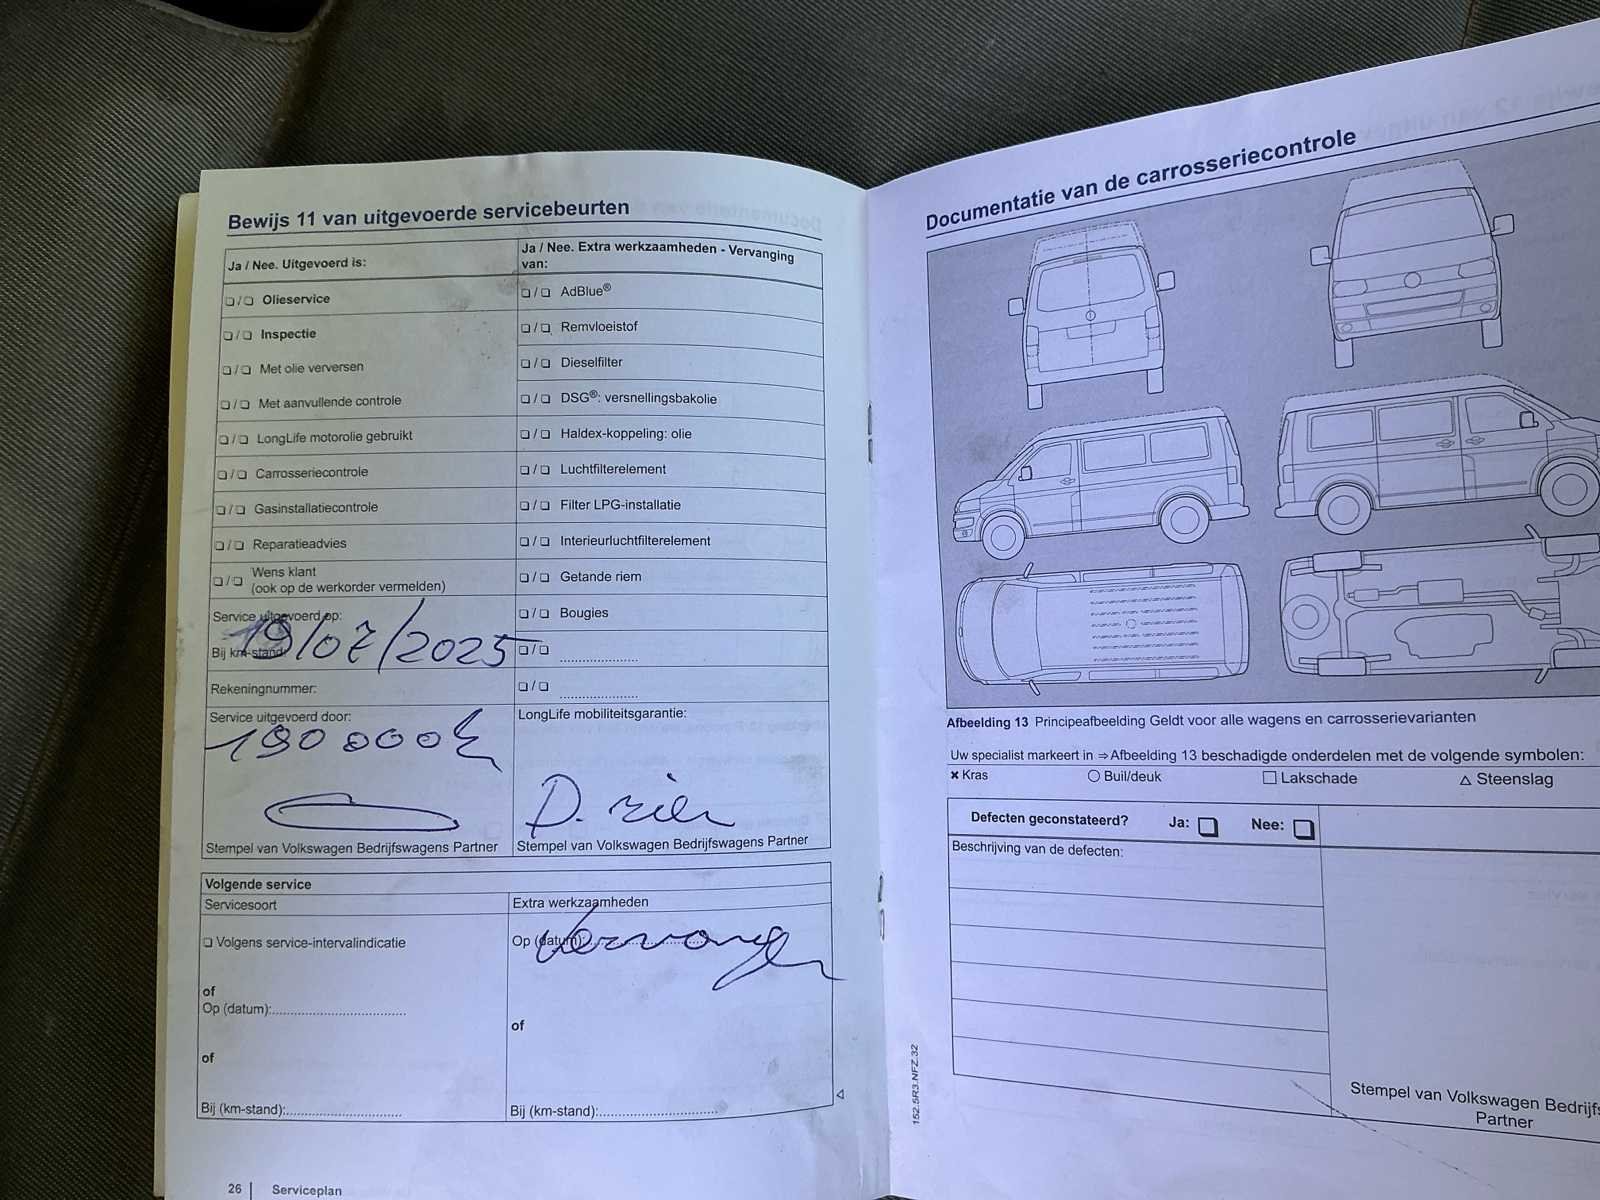 Bewijs 11 van uitgevoerde servicebeurten
Ja / Nee. Uitgevoerd is:
❏ / ❏ Olieservice
❏ / ❏ Inspectie
❏ / ❏ Met olie verversen
❏ / ❏ Met aanvullende controle
❏ / ❏ LongLife motorolie gebruikt
❏ / ❏ Carrosseriecontrole
❏ / ❏ Gasinstallatiecontrole
❏ / ❏ Reparatieadvies
❏ / ❏ Wens klant
(ook op de werkorder vermelden)
Service uitgevoerd op:
19/07/2025
Bij km-stand:
Rekeningnummer:
Service uitgevoerd door:
190 000
Stempel van Volkswagen Bedrijfswagens Partner
Ja / Nee. Extra werkzaamheden - Vervanging
van:
❏ / ❏ AdBlue®
❏ / ❏ Remvloeistof
❏ / ❏ Dieselfilter
❏ / ❏ DSG®: versnellingsbakolie
❏ / ❏ Haldex-koppeling: olie
❏ / ❏ Luchtfilterelement
❏ / ❏ Filter LPG-installatie
❏ / ❏ Interieurluchtfilterelement
❏ / ❏ Getande riem
❏ / ❏ Bougies
❏ / ❏ .....................
❏ / ❏ .....................
LongLife mobiliteitsgarantie:
D. riem
Stempel van Volkswagen Bedrijfswagens Partner
Volgende service
Servicesoort
❏ Volgens service-intervalindicatie
of
Op (datum):...................................
of
Bij (km-stand):..............................
Extra werkzaamheden
Op (datum):
Vervangen
of
Bij (km-stand):..............................
26 | Serviceplan
Documentatie van de carrosseriecontrole
Afbeelding 13 Principeafbeelding Geldt voor alle wagens en carrosserievarianten
Uw specialist markeert in ⇒ Afbeelding 13 beschadigde onderdelen met de volgende symbolen:
✖ Kras ○ Buil/deuk □ Lakschade △ Steenslag
Defecten geconstateerd? Ja: ❏ Nee: ❏
Beschrijving van de defecten:
Stempel van Volkswagen Bedrijfs
Partner
152.5R3.NFZ.32